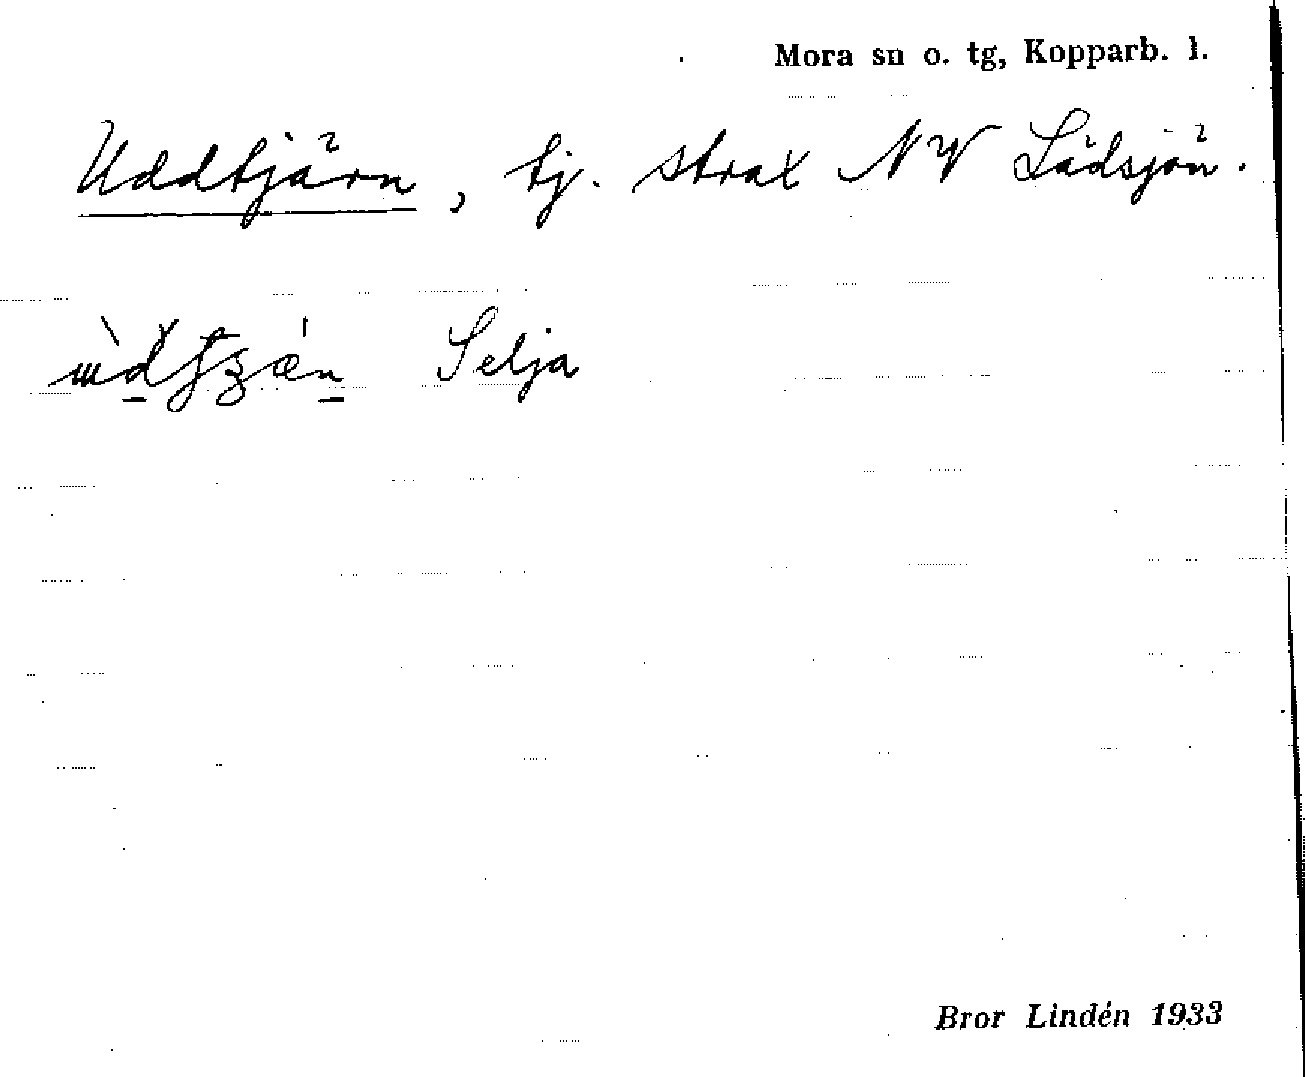 Mora sn o. tg, Kopparb. l.
Uddtjärn, tj. strax NV Lädsjön.
Selja
Bror Lindén 1933